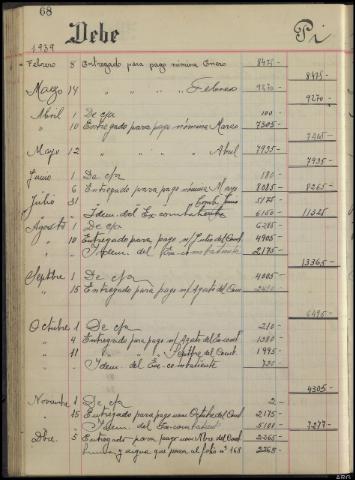 68
Debe
Pi
1939
Febrero 8 Entregado para pago nómina Enero 8475-
8475-
Marzo 14 " " " " Febrero 9270-
9270-
Abril 1 De c/a 100-
" 10 Entregado para pago nómina Marzo 7305-
Mayo 12 " " " Abril 7935-
7935-
Junio 1 De c/a
" 6 Entregado para pago nómina Mayo 8085- 8265-
Julio 31 " " " " 5175-
" Idem. del Excombatiente 6150- 11325
Agosto 1 De c/a 6285-
" 10 Entregado para pago n/ Julio del Comb 4905-
" Idem. del Ex-combatiente 2175-
13365-
Septbre 1 De c/a 4005-
" 15 Entregado para pago n/ Agosto del Com
6495-
Octubre 1 De c/a 210-
" 4 Entregado para pago n/ Agosto del Ex-comt 1380-
" 11 " " " Septbre del Comt. 1995-
" Idem. del Ex-combatiente
4305-
Novembre 1 De c/a 2-
" 15 Entregado para pago nom Octubre del Comt 2175-
" Idem. del Excombatiente 5100- 7277-
Dbre. 5 Entregado para pago nom Nbre del Comt 2265-
y sigue que pasa al folio nº 168 2265-